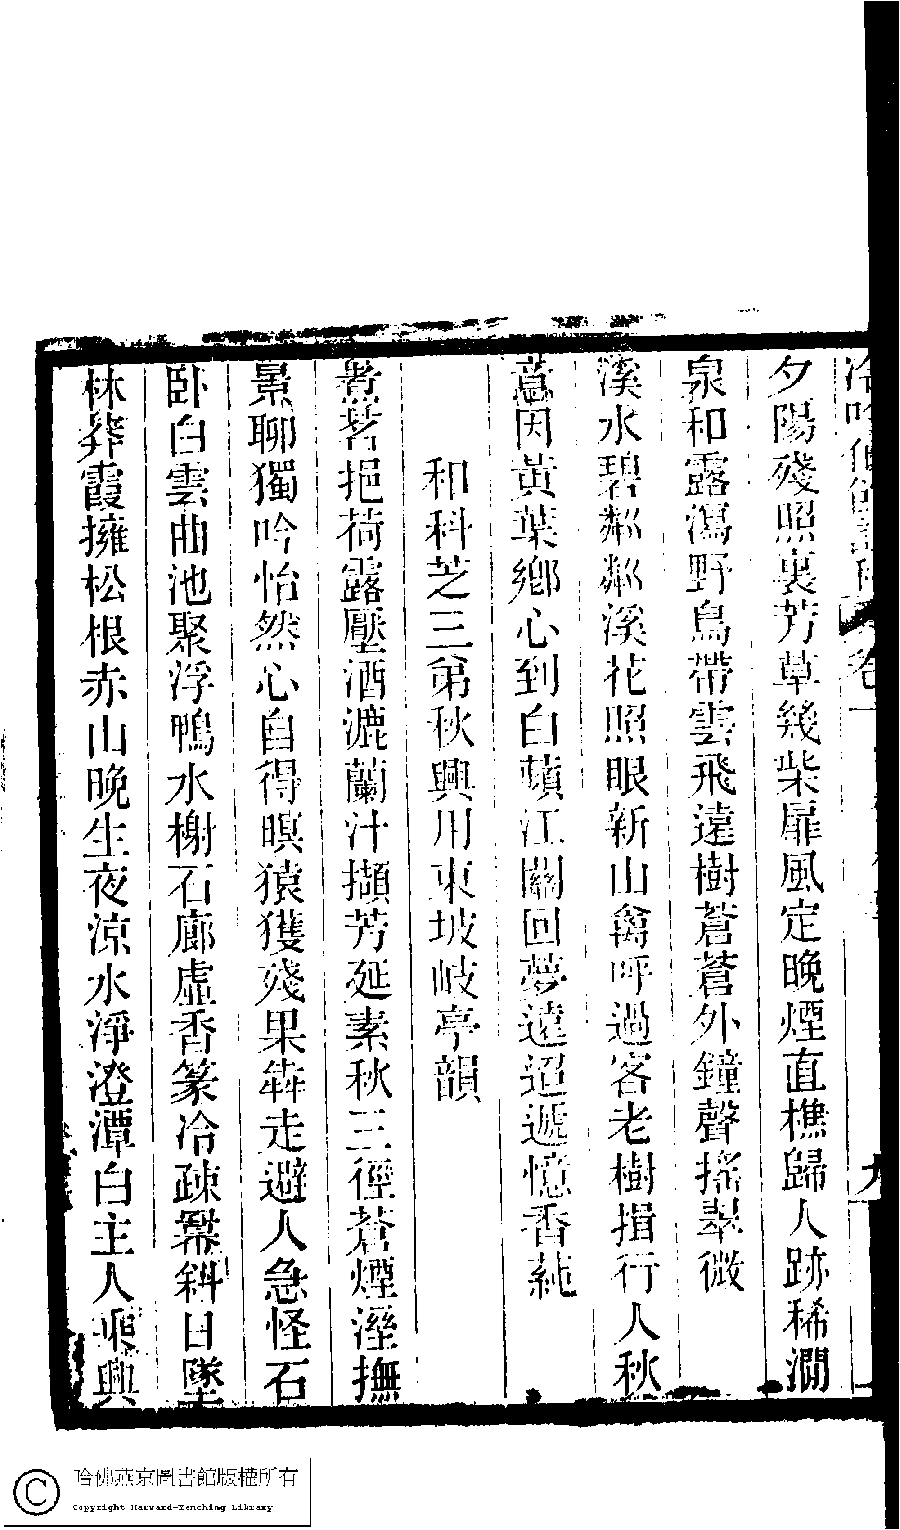 夕陽殘照裏芳草幾柴扉風定晚煙直樵歸人跡稀澗
泉和露瀉野鳥帶雲飛遠樹蒼蒼外鐘聲搖翠微
溪水碧粼粼溪花照眼新山禽呼過客老樹揖行人秋
意因黃葉鄉心到白蘋江關回夢遠迢遞憶香蒓
和科芝三弟秋興用東坡岐亭韻
煮茗挹荷露壓酒漉蘭汁擷芳延素秋三徑蒼煙溼撫
景聊獨吟怡然心自得暝猿獲殘果犇走避人急怪石
臥白雲曲池聚浮鴨水榭石廊虛香篆冷疎羃斜日墜
林莽霞擁松根赤山晚生夜涼水淨澄潭白主人乘興
卷一
九
哈佛燕京圖書館版權所有
Copyright Harvard-Yenching Library